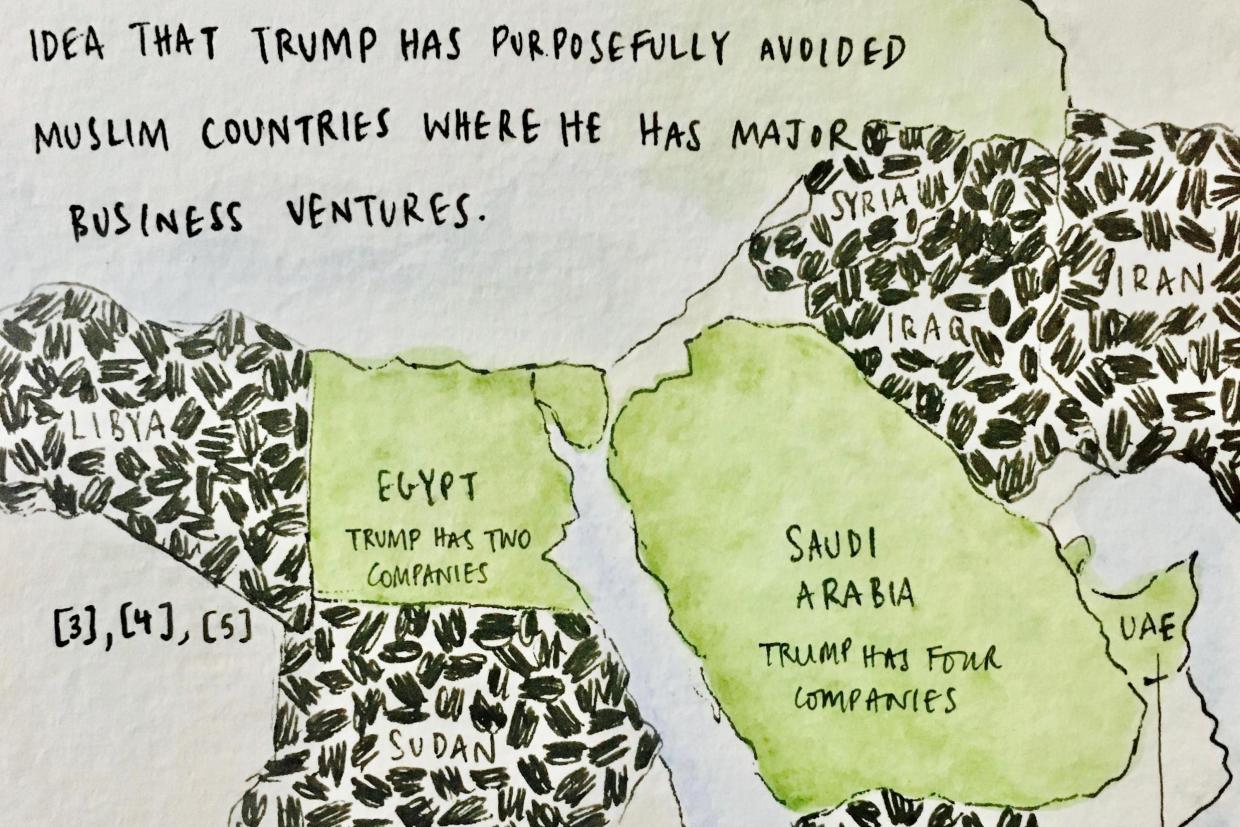 IDEA THAT TRUMP HAS PURPOSEFULLY AVOIDED
MUSLIM COUNTRIES WHERE HE HAS MAJOR
BUSINESS VENTURES.
SYRIA
IRAN
IRAQ
LIBYA
EGYPT
TRUMP HAS TWO
COMPANIES
SAUDI
ARABIA
TRUMP HAS FOUR
COMPANIES
UAE
[3], [4], [5]
SUDAN